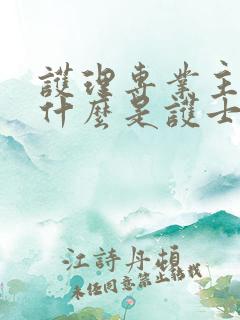 護理專業主
什麼是護士
江詩丹頓
未任同意禁止转载